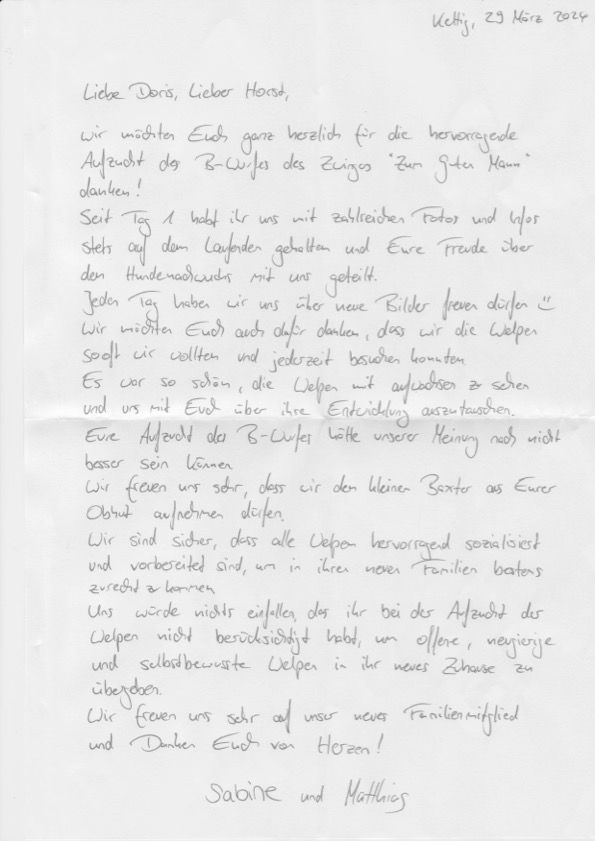 Kettig, 29 März 2024
Liebe Doris, Lieber Horst,
wir möchten Euch ganz herzlich für die hervorragende
Aufzucht des B-Wurfes des Zwingers "Zum Guten Mann"
danken!
Seit Tag 1 habt ihr uns mit zahlreichen Fotos und Infos
stets auf dem Laufenden gehalten und Eure Freude über
den Hundenachwuchs mit uns geteilt.
Jeden Tag haben wir uns über neue Bilder freuen dürfen ☺
Wir möchten Euch auch dafür danken, dass wir die Welpen
sooft wir wollten und jederzeit besuchen konnten.
Es war so schön, die Welpen mit aufwachsen zu sehen
und uns mit Euch über ihre Entwicklung auszutauschen.
Eure Aufzucht des B-Wurfes hätte unserer Meinung nach nicht
besser sein können.
Wir freuen uns sehr, dass wir den kleinen Baxter aus Eurer
Obhut aufnehmen dürfen.
Wir sind sicher, dass alle Welpen hervorragend sozialisiert
und vorbereitet sind, um in ihren neuen Familien bestens
zurecht zu kommen.
Uns würde nichts einfallen, das ihr bei der Aufzucht der
Welpen nicht berücksichtigt habt, um offene, neugierige
und selbstbewusste Welpen in ihr neues Zuhause zu
übergeben.
Wir freuen uns sehr auf unser neues Familienmitglied
und Danken Euch von Herzen!
Sabine und Matthias